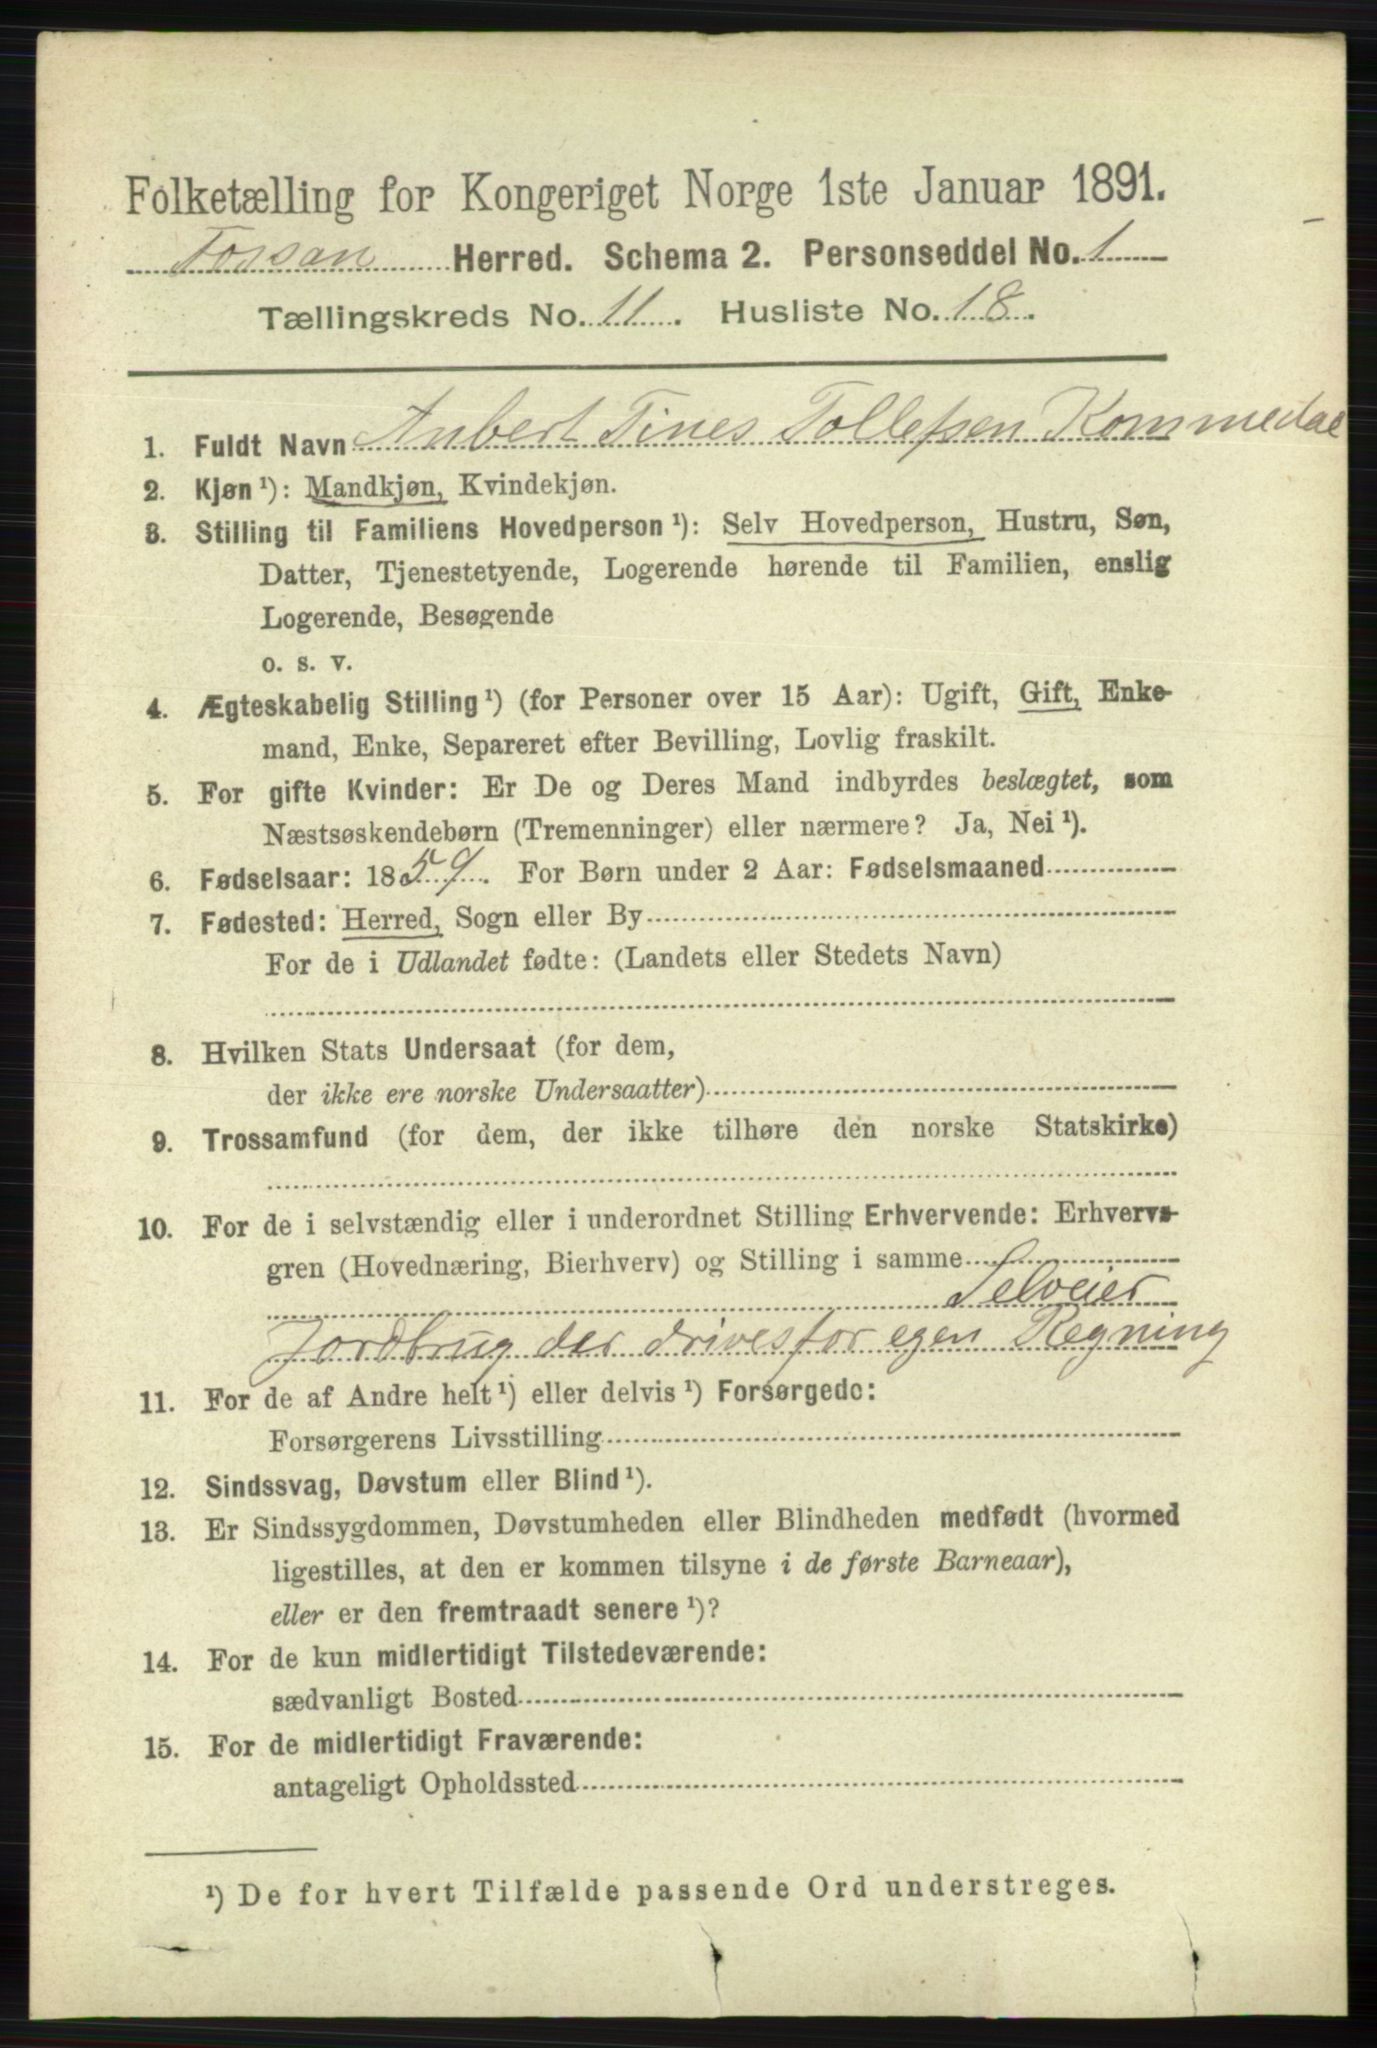 Folketælling for Kongeriget Norge 1ste Januar 1891.
Fossan Herred. Schema 2. Personseddel No. 1
Tællingskreds No. 11. Husliste No. 18.
1. Fuldt Navn Anbert Tines Tollefsen Kommedal
2. Kjøn ¹): Mandkjøn, Kvindekjøn.
3. Stilling til Familiens Hovedperson ¹): Selv Hovedperson, Hustru, Søn,
Datter, Tjenestetyende, Logerende hørende til Familien, enslig
Logerende, Besøgende
o. s. v.
4. Ægteskabelig Stilling ¹) (for Personer over 15 Aar): Ugift, Gift, Enke-
mand, Enke, Separeret efter Bevilling, Lovlig fraskilt.
5. For gifte Kvinder: Er De og Deres Mand indbyrdes beslægtet, som
Næstsøskendebørn (Tremenninger) eller nærmere? Ja, Nei ¹).
6. Fødselsaar: 1859. For Børn under 2 Aar: Fødselsmaaned
7. Fødested: Herred, Sogn eller By
For de i Udlandet fødte: (Landets eller Stedets Navn)
8. Hvilken Stats Undersaat (for dem,
der ikke ere norske Undersaatter)
9. Trossamfund (for dem, der ikke tilhøre den norske Statskirke)
10. For de i selvstændig eller i underordnet Stilling Erhvervende: Erhvervs-
gren (Hovednæring, Bierhverv) og Stilling i samme
Selveier
Jordbrug der drives for egen Regning
11. For de af Andre helt ¹) eller delvis ¹) Forsørgede:
Forsørgerens Livsstilling
12. Sindssvag, Døvstum eller Blind ¹).
13. Er Sindssygdommen, Døvstumheden eller Blindheden medfødt (hvormed
ligestilles, at den er kommen tilsyne i de første Barneaar),
eller er den fremtraadt senere ¹)?
14. For de kun midlertidigt Tilstedeværende:
sædvanligt Bosted
15. For de midlertidigt Fraværende:
antageligt Opholdssted
¹) De for hvert Tilfælde passende Ord understreges.